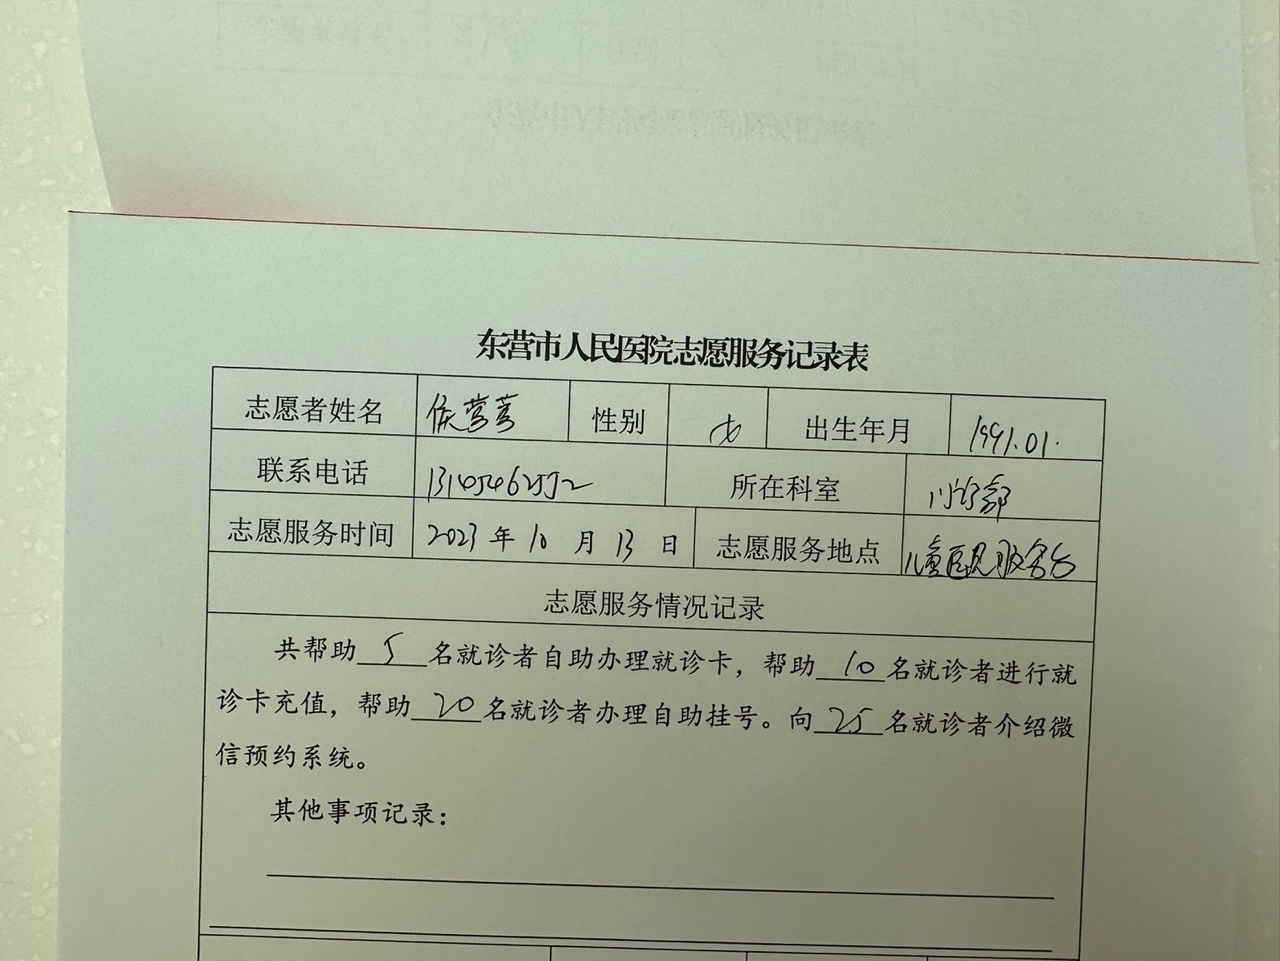 东营市人民医院志愿服务记录表
志愿者姓名 侯莺莺 性别 女 出生年月 1991.01.
联系电话 13145462572 所在科室 门诊部
志愿服务时间 2023 年 10 月 13 日 志愿服务地点 儿童医院服务台
志愿服务情况记录
共帮助 5 名就诊者自助办理就诊卡，帮助 10 名就诊者进行就
诊卡充值，帮助 20 名就诊者办理自助挂号。向 25 名就诊者介绍微
信预约系统。
其他事项记录：